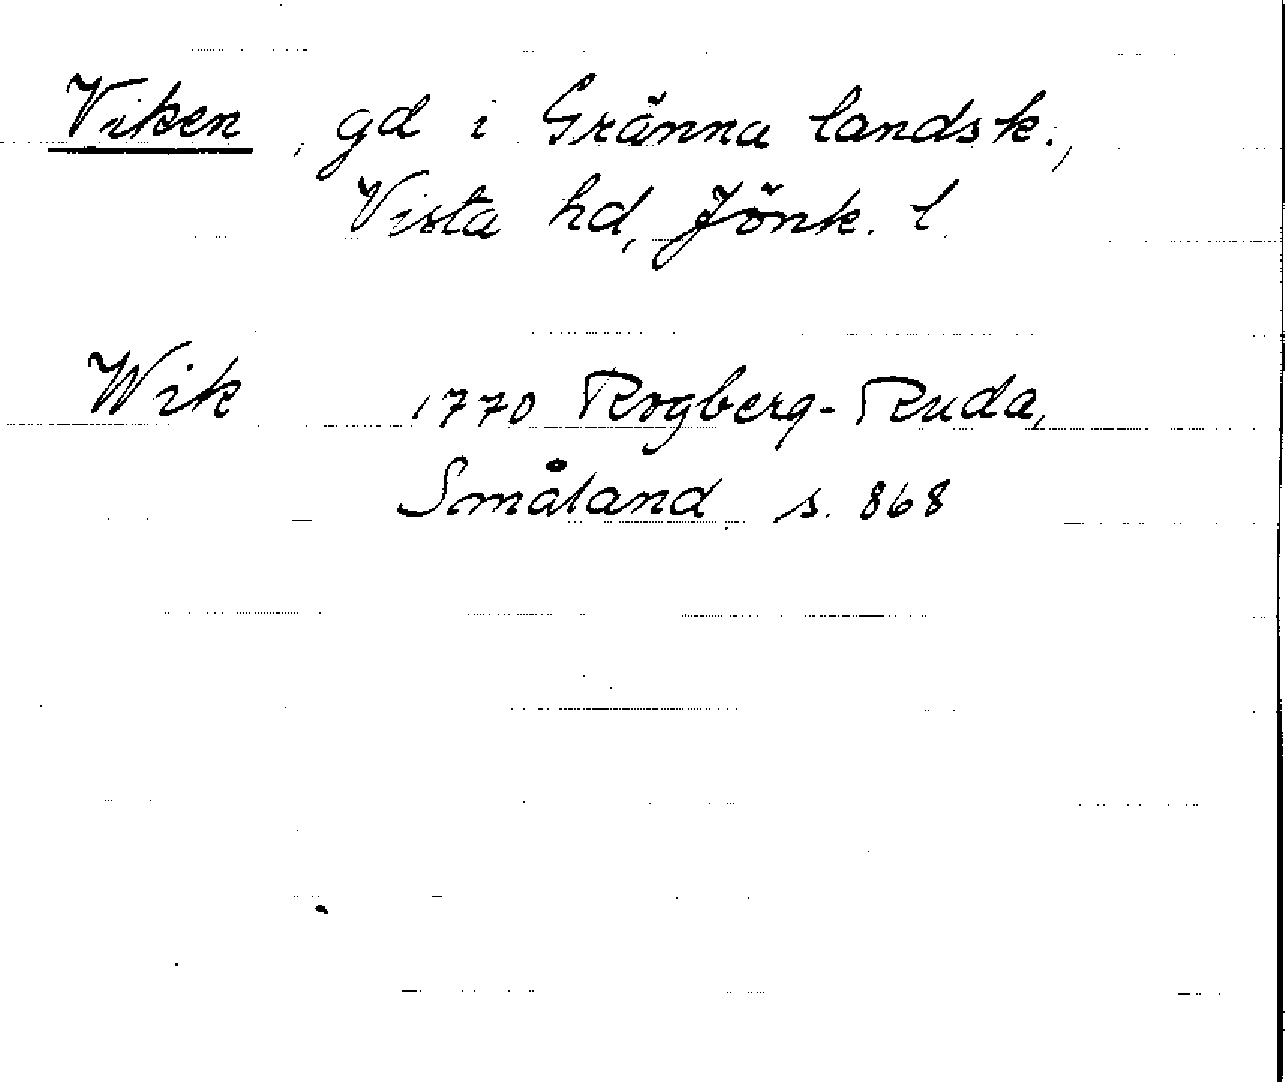 Viken, gd i Gränna landsk.,
Vista hd, Jönk. l.
Wik 1770 Rogberg-Ruda,
Småland s. 868